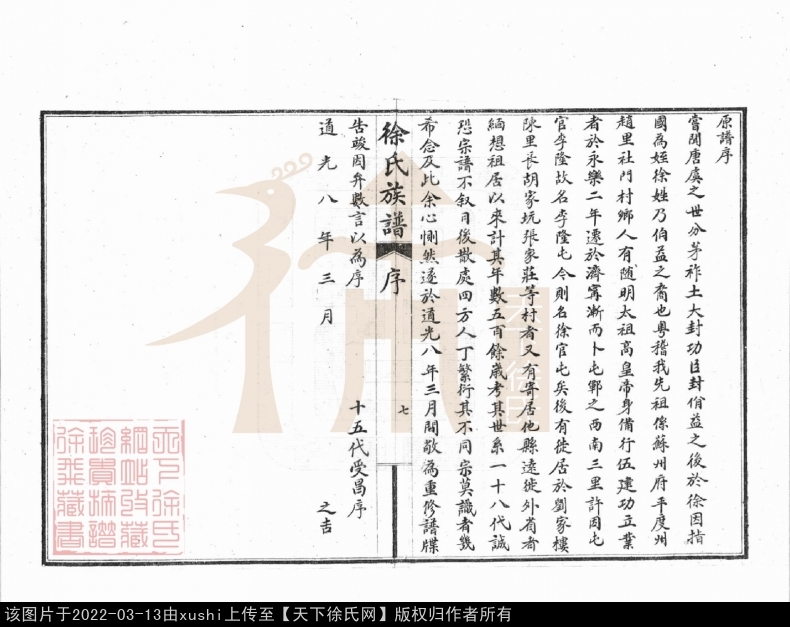 原譜序
嘗聞唐虞之世分茅祚土大封功臣封伯益之後於徐因指
國為姓徐姓乃伯益之裔也粵稽我先祖係蘇州府平度州
趙里社門村鄉人有随明太祖高皇帝身備行伍建功立業
者於永樂二年遷於濟寗漸而卜屯鄆之西南三里許因屯
官李隆故名李隆屯今則名徐官屯矣後有徙居於劉家樓
陳里長胡家坑張家莊等村者又有寄居他縣遠徙外省者
緬想祖居以來計其年數五百餘歲考其世系一十八代誠
恐宗譜不叙日後散處四方人丁繁衍其不同宗莫識者幾
希念及此余心惻然遂於道光八年三月間敬為重修譜牒
徐氏族譜 序 七
告竣因弁數言以為序
十五代受昌序
道光八年三月 之吉
天下徐氏
網站收藏
珍貴族譜
徐 藏書
该图片于2022-03-13由xushi上传至【天下徐氏网】版权归作者所有